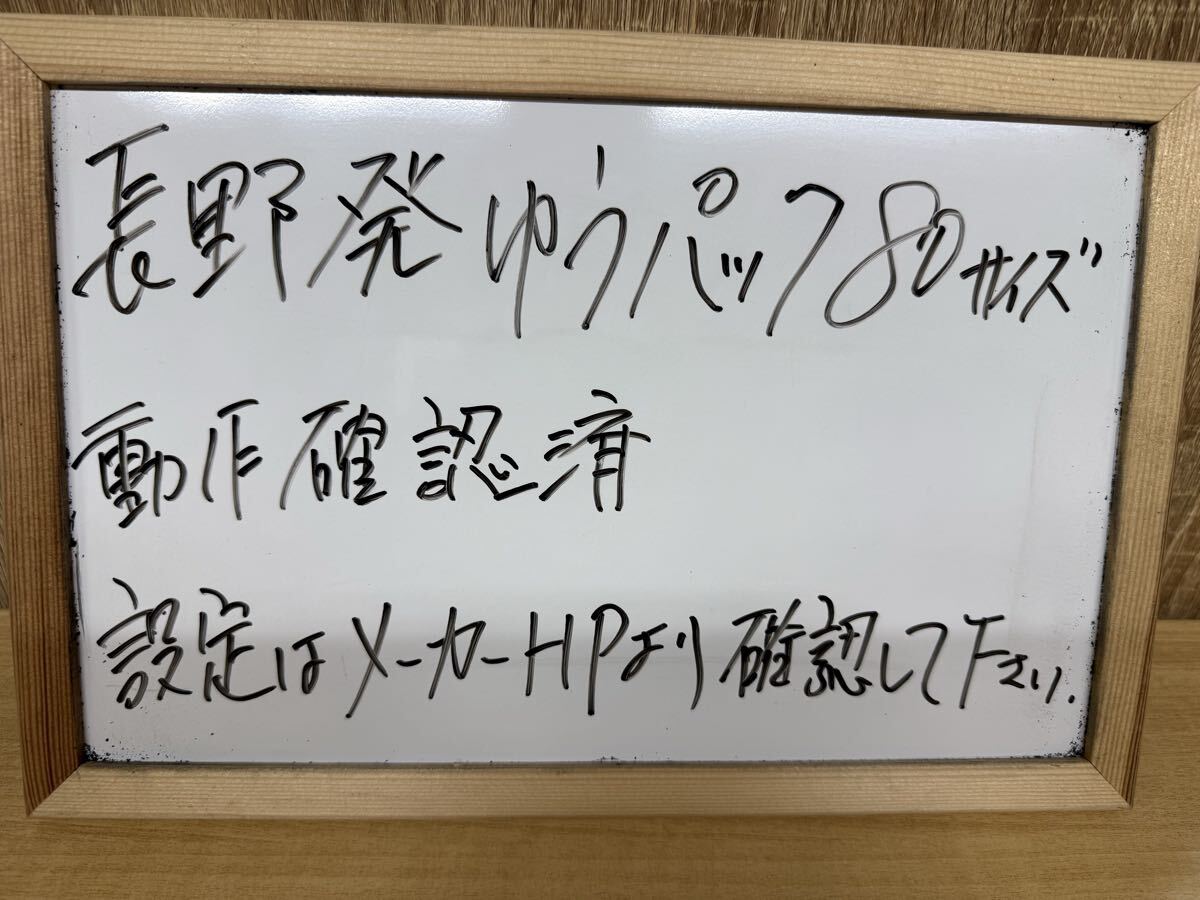 長野発ゆうパック80サイズ
動作確認済
設定はメーカーHPより確認して下さい.